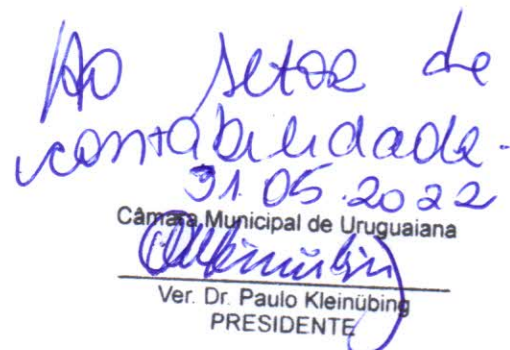 Ao setor de
contabilidade.
31.05.2022
Câmara Municipal de Uruguaiana
Ver. Dr. Paulo Kleinübing
PRESIDENTE